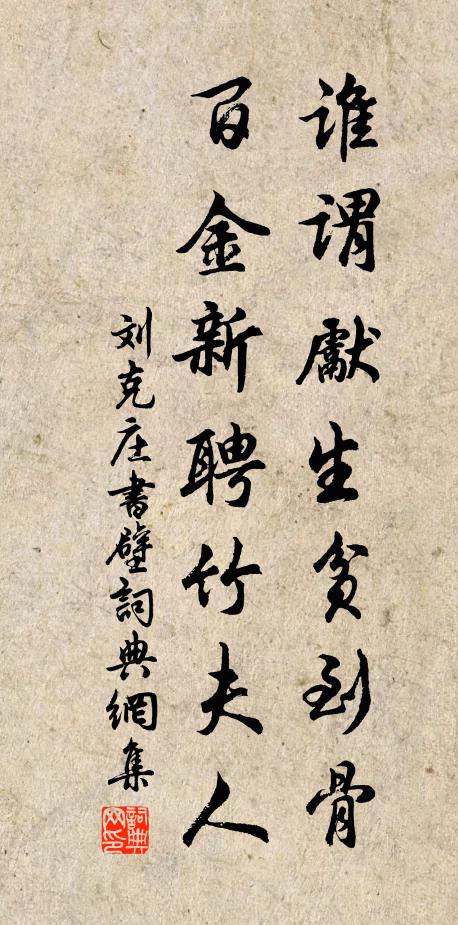 誰謂獻生貧到骨
百金新聘竹夫人
刘克庄書壁詞典網集
詞典网印